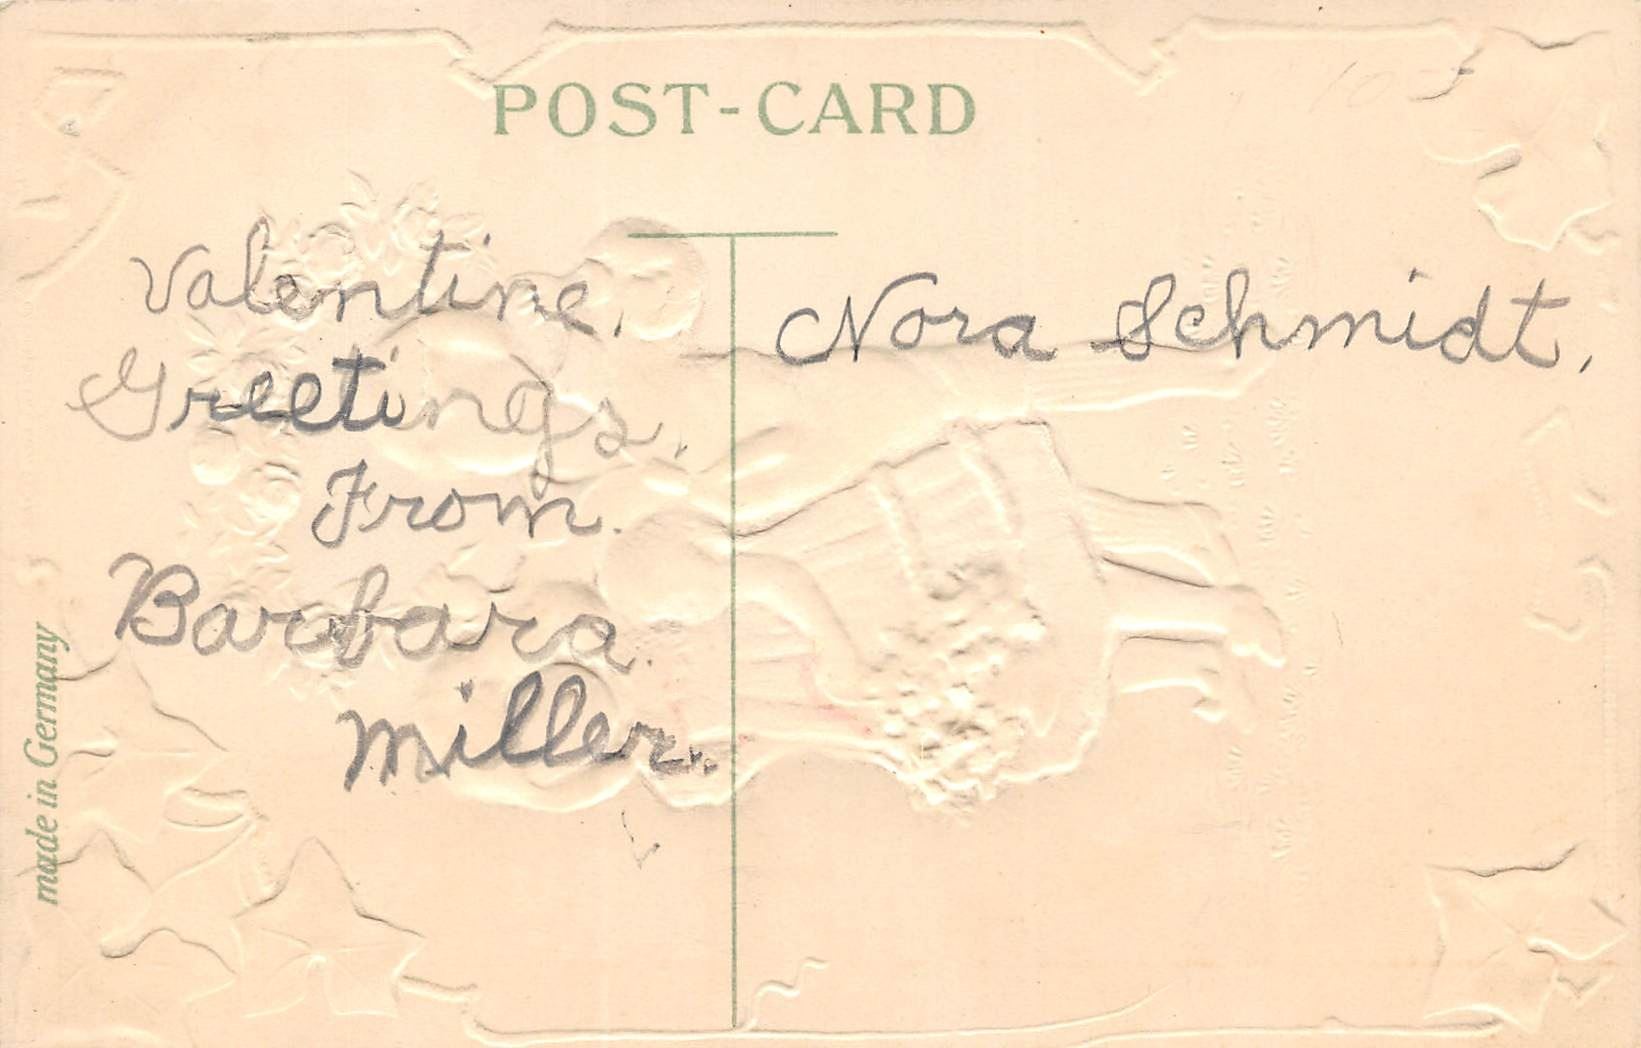 POST-CARD
Valentine.
Greetings.
From.
Barbara.
Miller.
Nora Schmidt.
made in Germany